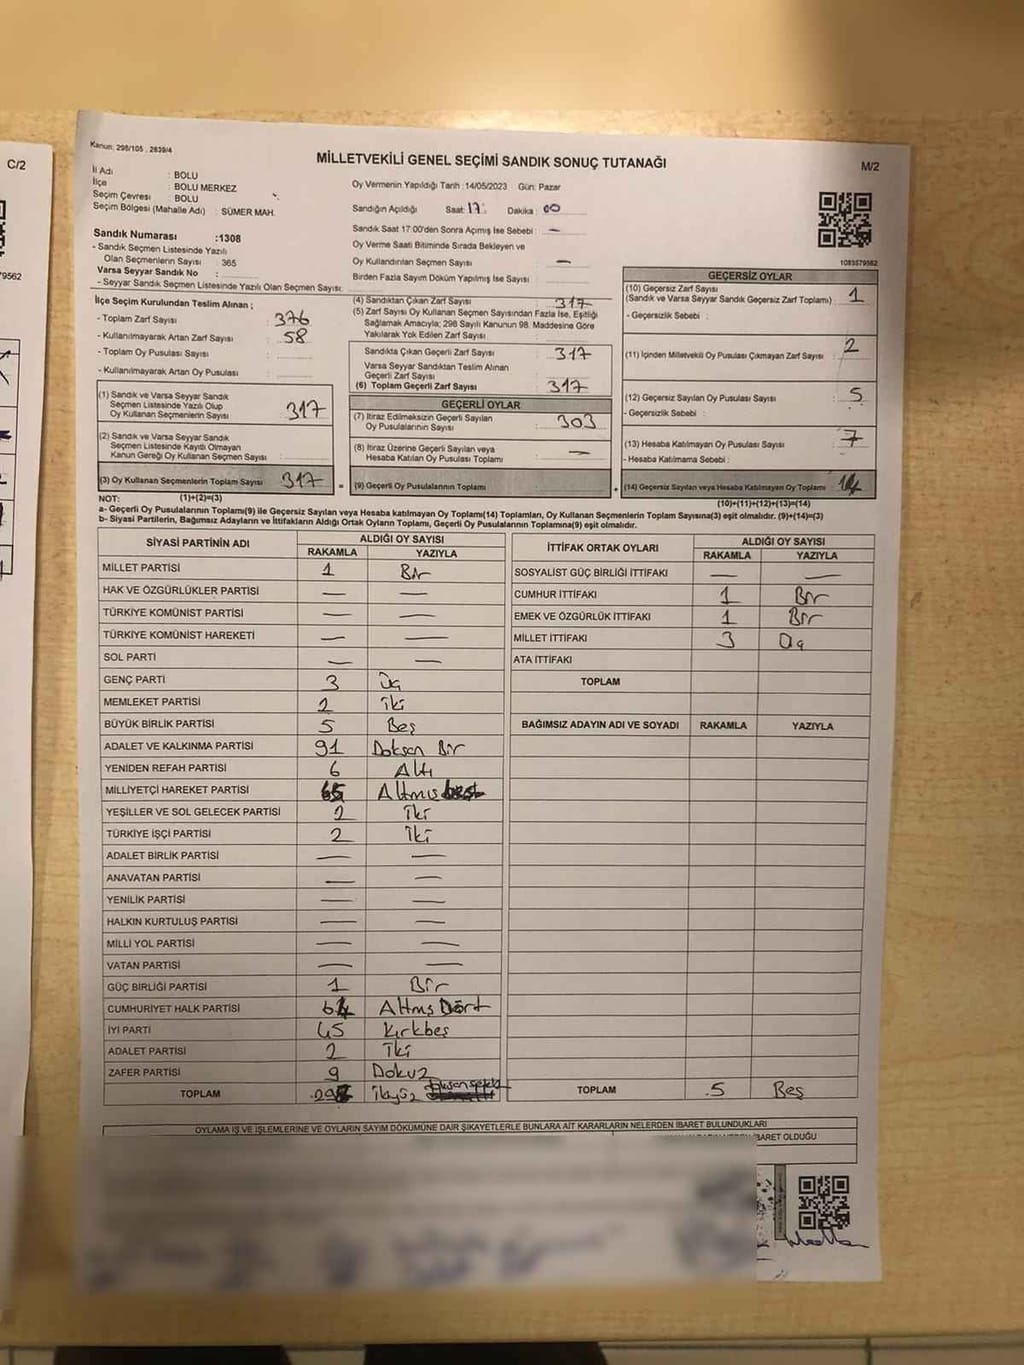 C/2
79562
Kanun: 298/105 , 2839/4
MİLLETVEKİLİ GENEL SEÇİMİ SANDIK SONUÇ TUTANAĞI
M/2
İl Adı : BOLU
İlçe : BOLU MERKEZ
Seçim Çevresi : BOLU
Seçim Bölgesi (Mahalle Adı) : SÜMER MAH.
Sandık Numarası :1308
- Sandık Seçmen Listesinde Yazılı
Olan Seçmenlerin Sayısı : 365
Varsa Seyyar Sandık No :
- Seyyar Sandık Seçmen Listesinde Yazılı Olan Seçmen Sayısı:
Oy Vermenin Yapıldığı Tarih :14/05/2023 Gün: Pazar
Sandığın Açıldığı Saat: 17: Dakika : 00
Sandık Saat 17:00'den Sonra Açımış İse Sebebi : —
Oy Verme Saati Bitiminde Sırada Bekleyen ve
Oy Kullandırılan Seçmen Sayısı : —
Birden Fazla Sayım Döküm Yapılmış İse Sayısı :
1083579562
İlçe Seçim Kurulundan Teslim Alınan ;
- Toplam Zarf Sayısı : 376
- Kullanılmayarak Artan Zarf Sayısı : 58
- Toplam Oy Pusulası Sayısı :
- Kullanılmayarak Artan Oy Pusulası :
(1) Sandık ve Varsa Seyyar Sandık
Seçmen Listesinde Yazılı Olup
Oy Kullanan Seçmenlerin Sayısı : 317
(2) Sandık ve Varsa Seyyar Sandık
Seçmen Listesinde Kayıtlı Olmayan
Kanun Gereği Oy Kullanan Seçmen Sayısı :
(3) Oy Kullanan Seçmenlerin Toplam Sayısı : 317
(4) Sandıktan Çıkan Zarf Sayısı : 317
(5) Zarf Sayısı Oy Kullanan Seçmen Sayısından Fazla İse, Eşitliği
Sağlamak Amacıyla; 298 Sayılı Kanunun 98. Maddesine Göre
Yakılarak Yok Edilen Zarf Sayısı :
Sandıkta Çıkan Geçerli Zarf Sayısı : 317
Varsa Seyyar Sandıktan Teslim Alınan
Geçerli Zarf Sayısı :
(6) Toplam Geçerli Zarf Sayısı : 317
GEÇERLİ OYLAR
(7) İtiraz Edilmeksizin Geçerli Sayılan
Oy Pusulalarının Sayısı : 303
(8) İtiraz Üzerine Geçerli Sayılan veya
Hesaba Katılan Oy Pusulası Toplamı : —
= (9) Geçerli Oy Pusulalarının Toplamı :
GEÇERSİZ OYLAR
(10) Geçersiz Zarf Sayısı
(Sandık ve Varsa Seyyar Sandık Geçersiz Zarf Toplamı) : 1
- Geçersizlik Sebebi :
(11) İçinden Milletvekili Oy Pusulası Çıkmayan Zarf Sayısı : 2
(12) Geçersiz Sayılan Oy Pusulası Sayısı : 5
- Geçersizlik Sebebi :
(13) Hesaba Katılmayan Oy Pusulası Sayısı : 7
- Hesaba Katılmama Sebebi :
+ (14) Geçersiz Sayılan veya Hesaba Katılmayan Oy Toplamı : 14
NOT: (1)+(2)=(3)
(10)+(11)+(12)+(13)=(14)
a- Geçerli Oy Pusulalarının Toplamı(9) ile Geçersiz Sayılan veya Hesaba katılmayan Oy Toplamı(14) Toplamları, Oy Kullanan Seçmenlerin Toplam Sayısına(3) eşit olmalıdır. (9)+(14)=(3)
b- Siyasi Partilerin, Bağımsız Adayların ve İttifakların Aldığı Ortak Oyların Toplamı, Geçerli Oy Pusulalarının Toplamına(9) eşit olmalıdır.
SİYASİ PARTİNİN ADI ALDIĞI OY SAYISI
RAKAMLA YAZIYLA
MİLLET PARTİSİ 1 Bir
HAK VE ÖZGÜRLÜKLER PARTİSİ — —
TÜRKİYE KOMÜNİST PARTİSİ — —
TÜRKİYE KOMÜNİST HAREKETİ — —
SOL PARTİ — —
GENÇ PARTİ 3 Üç
MEMLEKET PARTİSİ 2 İki
BÜYÜK BİRLİK PARTİSİ 5 Beş
ADALET VE KALKINMA PARTİSİ 91 Doksan Bir
YENİDEN REFAH PARTİSİ 6 Altı
MİLLİYETÇİ HAREKET PARTİSİ 65 Altmış beş
YEŞİLLER VE SOL GELECEK PARTİSİ 2 İki
TÜRKİYE İŞÇİ PARTİSİ 2 İki
ADALET BİRLİK PARTİSİ — —
ANAVATAN PARTİSİ — —
YENİLİK PARTİSİ — —
HALKIN KURTULUŞ PARTİSİ — —
MİLLİ YOL PARTİSİ — —
VATAN PARTİSİ — —
GÜÇ BİRLİĞİ PARTİSİ 1 Bir
CUMHURİYET HALK PARTİSİ 64 Altmış Dört
İYİ PARTİ 45 Kırkbeş
ADALET PARTİSİ 2 İki
ZAFER PARTİSİ 9 Dokuz
TOPLAM İkiyüz
İTTİFAK ORTAK OYLARI ALDIĞI OY SAYISI
RAKAMLA YAZIYLA
SOSYALİST GÜÇ BİRLİĞİ İTTİFAKI — —
CUMHUR İTTİFAKI 1 Bir
EMEK VE ÖZGÜRLÜK İTTİFAKI 1 Bir
MİLLET İTTİFAKI 3 Üç
ATA İTTİFAKI
TOPLAM
BAĞIMSIZ ADAYIN ADI VE SOYADI RAKAMLA YAZIYLA
TOPLAM 5 Beş
OYLAMA İŞ VE İŞLEMLERİNE VE OYLARIN SAYIM DÖKÜMÜNE DAİR ŞİKAYETLERLE BUNLARA AİT KARARLARIN NELERDEN İBARET BULUNDUKLARI
İBARET OLDUĞU